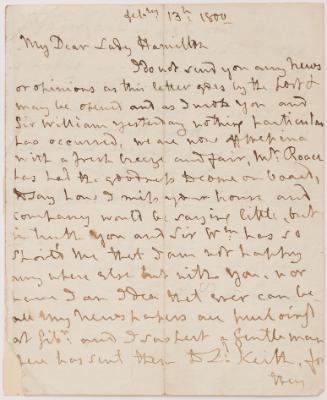 Feb:ry 13th 1800
My Dear Lady Hamilton
I do not send you any news
or opinions as this letter goes by the post &
may be opened and as I wrote you and
Sir William yesterday nothing particular
has occurred, we are now off Messina
with a fresh breeze and fair, Mr. Roche
has had the goodness to come on board,
to say how I miss your house and
company would be saying little, but
in truth you and Sir Wm has so
spoil'd me that I am not happy
any where else but with you, nor
have I an idea that ever can be
all my news papers are purloined
at Gibr. and I suspect a Gentleman
there has sent them to Ld. Keith, for
they